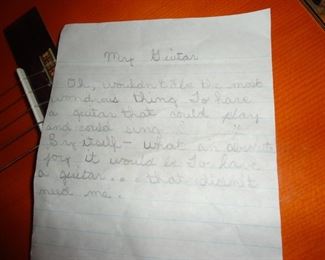 My Guitar
Oh, wouldn't it be the most
wond'rous thing To have
a guitar that could play
and could sing
By itself – what an absolute
joy it would be To have
a guitar... that didn't
need me.